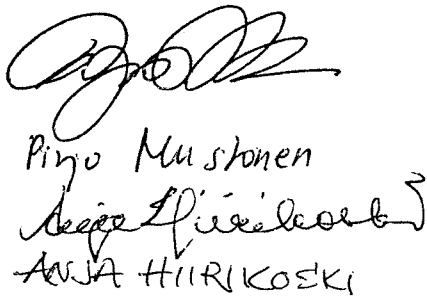 Pirjo Mustonen
Anja Hiirikoski
ANJA HIIRIKOSKI